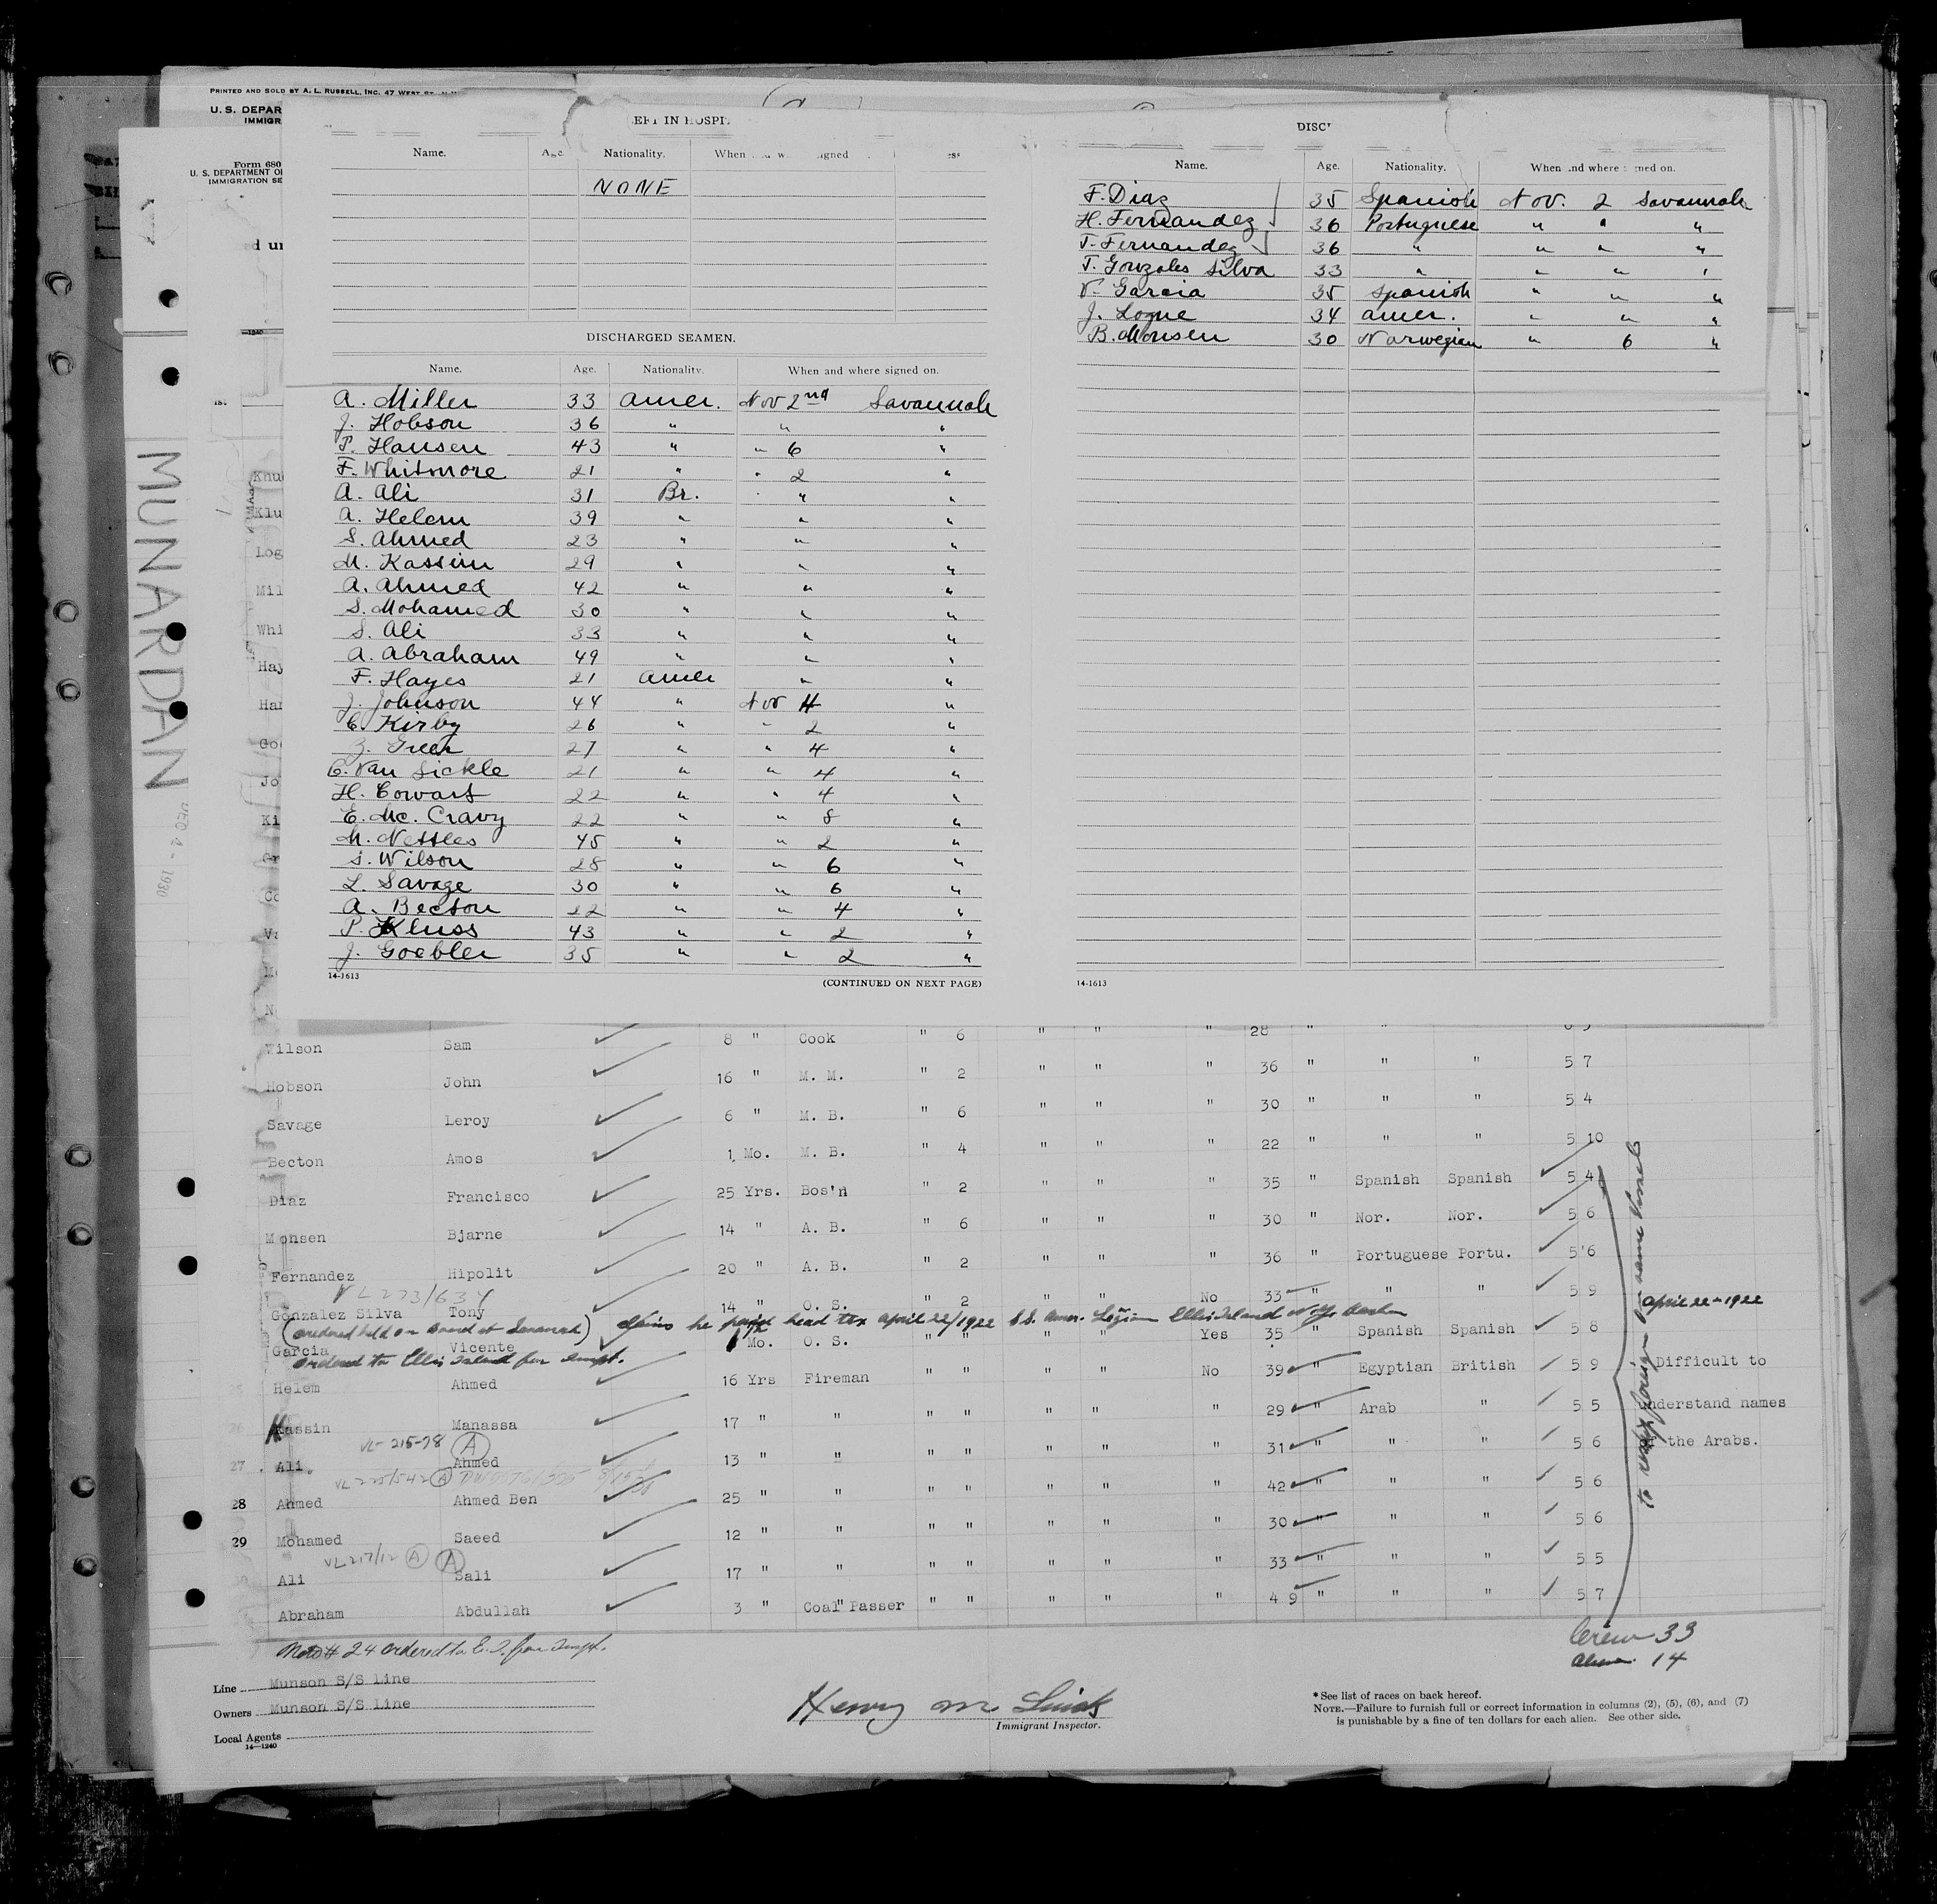 PRINTED AND SOLD BY A. L. RUSSELL, INC. 47 WEST
U. S. DEPAR
IMMIGR
Form 680
U. S. DEPARTMENT OF
IMMIGRATION SE
MUNARDAN
DEC 2 - 1930
EFT IN HOSPI
Name. Age. Nationality. When igned ess
NONE
DISCHARGED SEAMEN.
Name. Age. Nationality. When and where signed on.
A. Miller 33 Amer. Nov 2nd Savannah
J. Hobson 36 " " "
P. Hansen 43 " " 6 "
F. Whitmore 21 " " 2 "
A. Ali 31 Br. " " "
A. Helem 39 " " "
S. Ahmed 23 " " "
M. Kassim 29 " " "
A. Ahmed 42 " " "
S. Mohamed 30 " " "
S. Ali 33 " " "
A. Abraham 49 " " "
F. Hayes 21 Amer " "
J. Johnson 44 " Nov 4 "
C. Kirby 26 " " 2 "
Z. Green 27 " " 4 "
C. Van Sickle 21 " " 4 "
H. Cowart 22 " " 4 "
E. Mc. Cravy 22 " " 8 "
M. Nettles 45 " " 2 "
S. Wilson 28 " " 6 "
L. Savage 30 " " 6 "
A. Becton 22 " " 4 "
P. Kluss 43 " " 2 "
J. Goebler 35 " " 2 "
14-1613
(CONTINUED ON NEXT PAGE)
DISC
Name. Age. Nationality. When and where signed on.
F. Diaz 35 Spanish Nov. 2 Savannah
H. Fernandez 36 Portuguese " " "
T. Fernandez 36 " " " "
T. Gonzales Silva 33 " " " "
V. Garcia 35 Spanish " " "
J. Logue 34 Amer. " " "
B. Monsen 30 Norwegian " 6 "
14-1613
Wilson Sam 8 " Cook " 6 " " " 28 " "
Hobson John 16 " M. M. " 2 " " " 36 " " " 5 7
Savage Leroy 6 " M. B. " 6 " " " 30 " " " 5 4
Becton Amos 1 Mo. M. B. " 4 " " " 22 " " " 5 10
Diaz Francisco 25 Yrs. Bos'n " 2 " " " 35 " Spanish Spanish 5 4
Monsen Bjarne 14 " A. B. " 6 " " " 30 " Nor. Nor. 5 6
Fernandez Hipolit 20 " A. B. " 2 " " " 36 " Portuguese Portu. 5 6
VL 273/634
Gonzalez Silva Tony 14 " O. S. " 2 " " No 33 " " " 5 9
(ordered held on board at Savanah) Claims he paid head tax april 22/1922 S.S. Amer. Legion Ellis Island N.Y.
april 22-1922
Garcia Vicente Mo. O. S. " " " " Yes 35 " Spanish Spanish 5 8
ordered to Ellis Island for inspt.
Helem Ahmed 16 Yrs Fireman " " " No 39 " Egyptian British 5 9 Difficult to
26 Kassin Manassa 17 " " " " " " " 29 " Arab " 5 5 understand names
VL-215-78 A
27 Ali Ahmed 13 " " " " " " " 31 " " " 5 6 of the Arabs.
VL 225/542 A
28 Ahmed Ahmed Ben 25 " " " " " " " 42 " " " 5 6
29 Mohamed Saeed 12 " " " " " " " 30 " " " 5 6
VL 217/12 A A
Ali Sali 17 " " " " " " " 33 " " " 5 5
Abraham Abdullah 3 " Coal Passer " " " " " 49 " " " 5 7
to reship foreign on same Vessels
Crew 33
Aliens 14
Note # 24 ordered to E. I. for inspt.
Line Munson S/S Line
Owners Munson S/S Line
Local Agents
14-1240
Immigrant Inspector.
* See list of races on back hereof.
NOTE.—Failure to furnish full or correct information in columns (2), (5), (6), and (7)
is punishable by a fine of ten dollars for each alien. See other side.